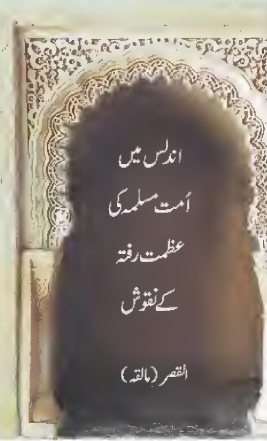 اندلس میں
اُمت مسلمہ کی
عظمت رفتہ
کے نقوش
القصر (مالقہ)